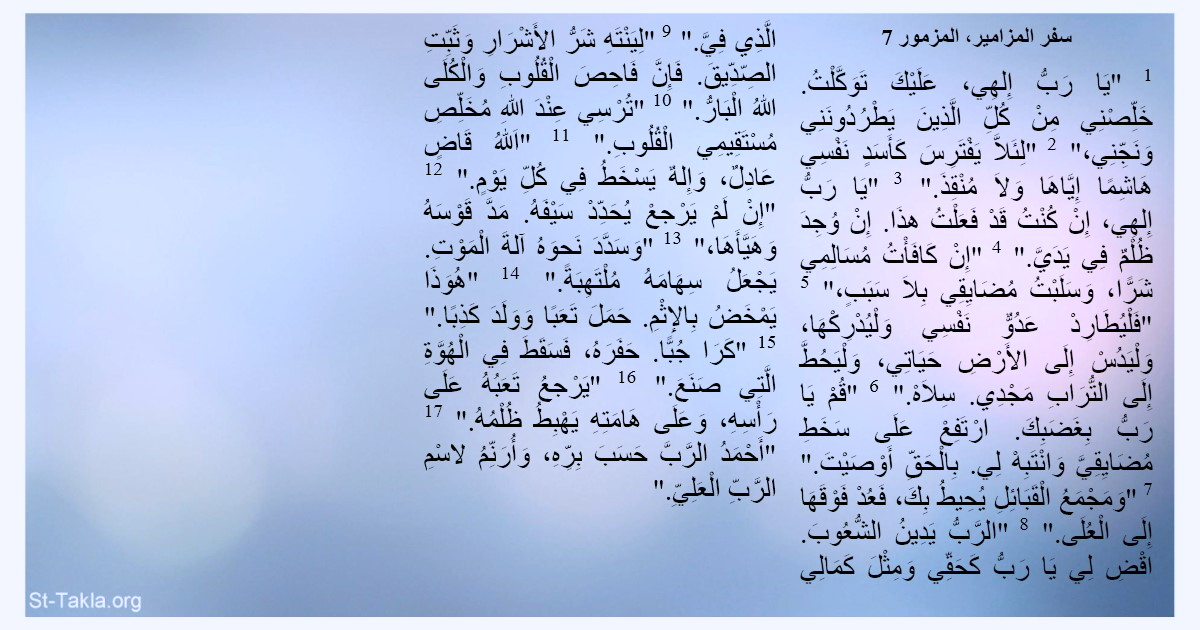 سفر المزامير، المزمور 7
1 "يَا رَبُّ إِلهِي، عَلَيْكَ تَوَكَّلْتُ.
خَلِّصْنِي مِنْ كُلِّ الَّذِينَ يَطْرُدُونَنِي
وَنَجِّنِي،" 2 "لِئَلاَّ يَفْتَرِسَ كَأَسَدٍ نَفْسِي
هَاشِمًا إِيَّاهَا وَلاَ مُنْقِذَ." 3 "يَا رَبُّ
إِلهِي، إِنْ كُنْتُ قَدْ فَعَلْتُ هذَا. إِنْ وُجِدَ
ظُلْمٌ فِي يَدَيَّ." 4 "إِنْ كَافَأْتُ مُسَالِمِي
شَرًّا، وَسَلَبْتُ مُضَايِقِي بِلاَ سَبَبٍ،" 5
"فَلْيُطَارِدْ عَدُوٌّ نَفْسِي وَلْيُدْرِكْهَا،
وَلْيَدُسْ إِلَى الأَرْضِ حَيَاتِي، وَلْيَحُطَّ
إِلَى التُّرَابِ مَجْدِي. سِلاَهْ." 6 "قُمْ يَا
رَبُّ بِغَضَبِكَ. ارْتَفِعْ عَلَى سَخَطِ
مُضَايِقِيَّ وَانْتَبِهْ لِي. بِالْحَقِّ أَوْصَيْتَ."
7 "وَمَجْمَعُ الْقَبَائِلِ يُحِيطُ بِكَ، فَعُدْ فَوْقَهَا
إِلَى الْعُلَى." 8 "الرَّبُّ يَدِينُ الشُّعُوبَ.
اقْضِ لِي يَا رَبُّ كَحَقِّي وَمِثْلَ كَمَالِي
الَّذِي فِيَّ." 9 "لِيَنْتَهِ شَرُّ الأَشْرَارِ وَثَبِّتِ
الصِّدِّيقَ. فَإِنَّ فَاحِصَ الْقُلُوبِ وَالْكُلَى
اللهُ الْبَارُّ." 10 "تُرْسِي عِنْدَ اللهِ مُخَلِّصِ
مُسْتَقِيمِي الْقُلُوبِ." 11 "اَللهُ قَاضٍ
عَادِلٌ، وَإِلهٌ يَسْخَطُ فِي كُلِّ يَوْمٍ." 12
"إِنْ لَمْ يَرْجعْ يُحَدِّدْ سَيْفَهُ. مَدَّ قَوْسَهُ
وَهَيَّأَهَا،" 13 "وَسَدَّدَ نَحوَهُ آلةَ الْمَوْتِ.
يَجْعَلُ سِهَامَهُ مُلْتَهِبَةً." 14 "هُوَذَا
يَمْخَضُ بِالإِثْمِ. حَمَلَ تَعَبًا وَوَلَدَ كَذِبًا."
15 "كَرَا جُبًّا. حَفَرَهُ، فَسَقَطَ فِي الْهُوَّةِ
الَّتِي صَنَعَ." 16 "يَرْجعُ تَعَبُهُ عَلَى
رَأْسِهِ، وَعَلَى هَامَتِهِ يَهْبِطُ ظُلْمُهُ." 17
"أَحْمَدُ الرَّبَّ حَسَبَ بِرِّهِ، وَأُرَنِّمُ لاسْمِ
الرَّبِّ الْعَلِيِّ."
St-Takla.org